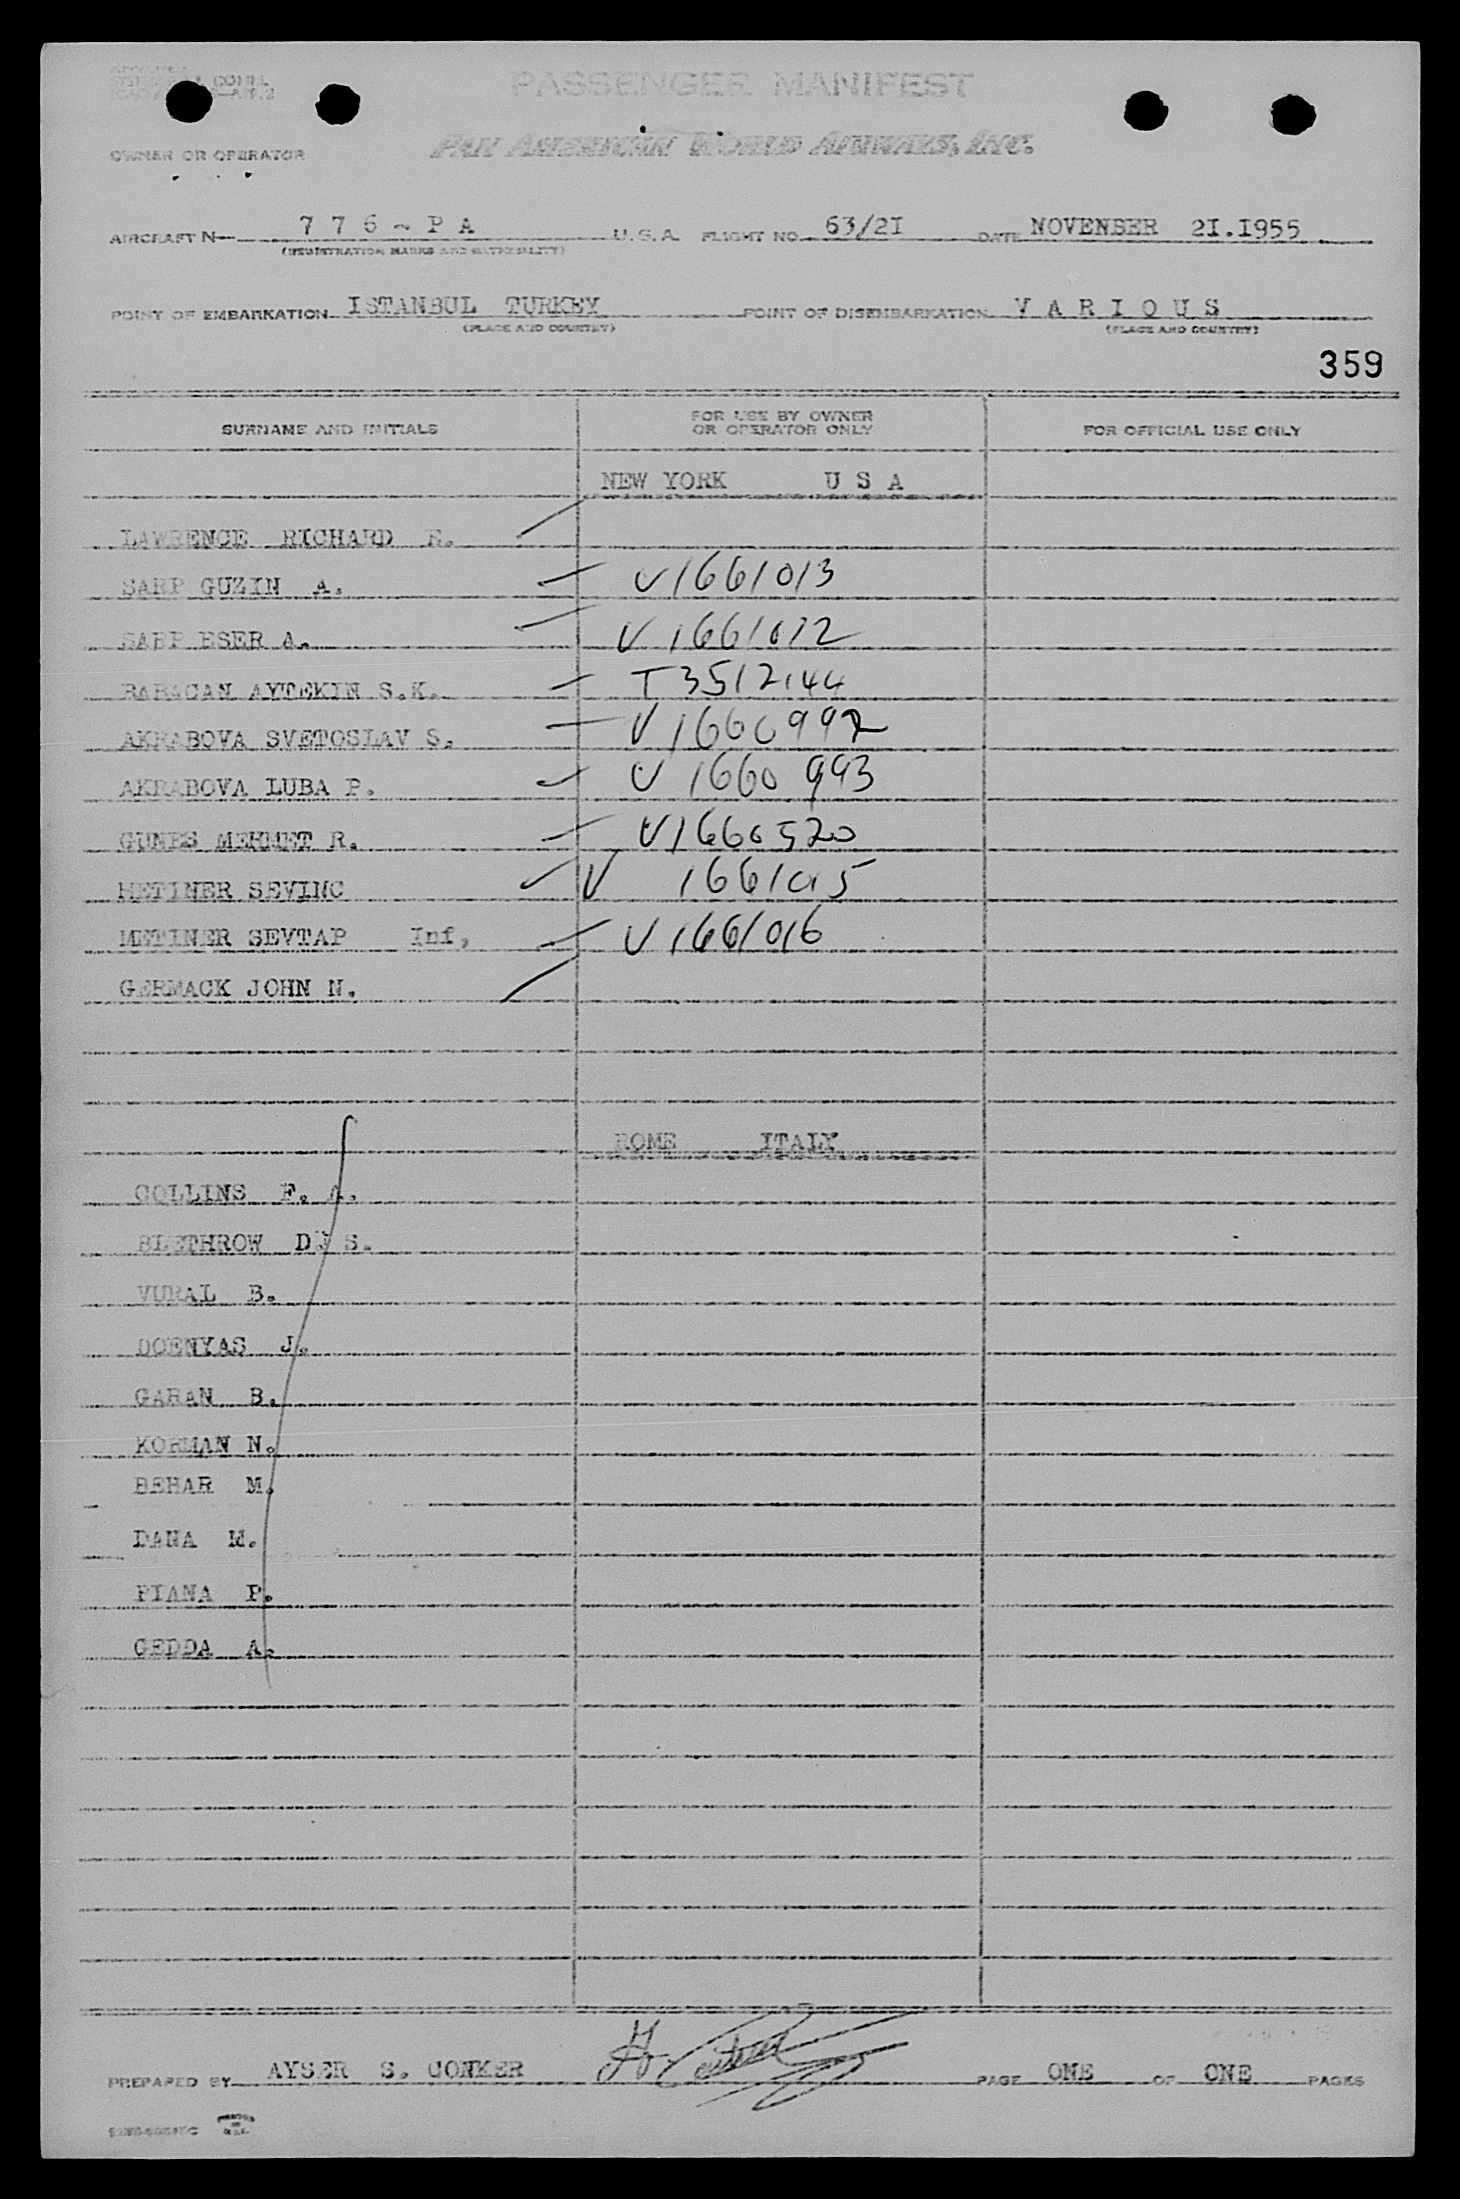 PASSENGER MANIFEST
PAN AMERICAN WORLD AIRWAYS, INC.
OWNER OR OPERATOR
AIRCRAFT N— 7 7 6 - P A U.S.A. FLIGHT NO. 63/2I DATE NOVEMBER 2I.I955
(REGISTRATION MARKS AND NATIONALITY)
POINT OF EMBARKATION ISTANBUL TURKEY POINT OF DISEMBARKATION V A R I O U S
(PLACE AND COUNTRY) (PLACE AND COUNTRY)
359
SURNAME AND INITIALS FOR USE BY OWNER OR OPERATOR ONLY FOR OFFICIAL USE ONLY
NEW YORK U S A
LAWRENCE RICHARD E.
SARP GUZIN A. V1661013
SARP ESER A. V 1661012
BABACAN AYTEKIN S.K. T 3512144
AKRABOVA SVETOSLAV S. V 1660992
AKRABOVA LUBA P. V 1660 993
GUNES MEHMET R. V1660520
METINER SEVINC V 1661015
METINER SEVTAP Inf, V 1661016
GERMACK JOHN N.
ROME ITALY
COLLINS F. A.
BLETHROW D. S.
VURAL B.
DOENYAS J.
GARAN B.
KORMAN N.
BEHAR M.
DANA M.
PIANA P.
GEDDA A.
PREPARED BY AYSER S. CONKER PAGE ONE OF ONE PAGES
PRINTED IN U.S.A.